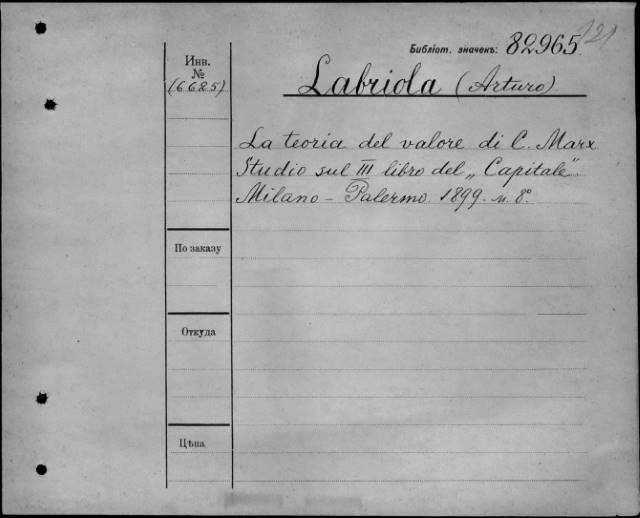 Библіот. значекъ: 82965
Инв.
№
(6625)
Labriola (Arturo)
La teoria del valore di C. Marx
Studio sul III libro del „Capitale"
Milano – Palermo. 1899. м. 8°.
По заказу
Откуда
Цѣна